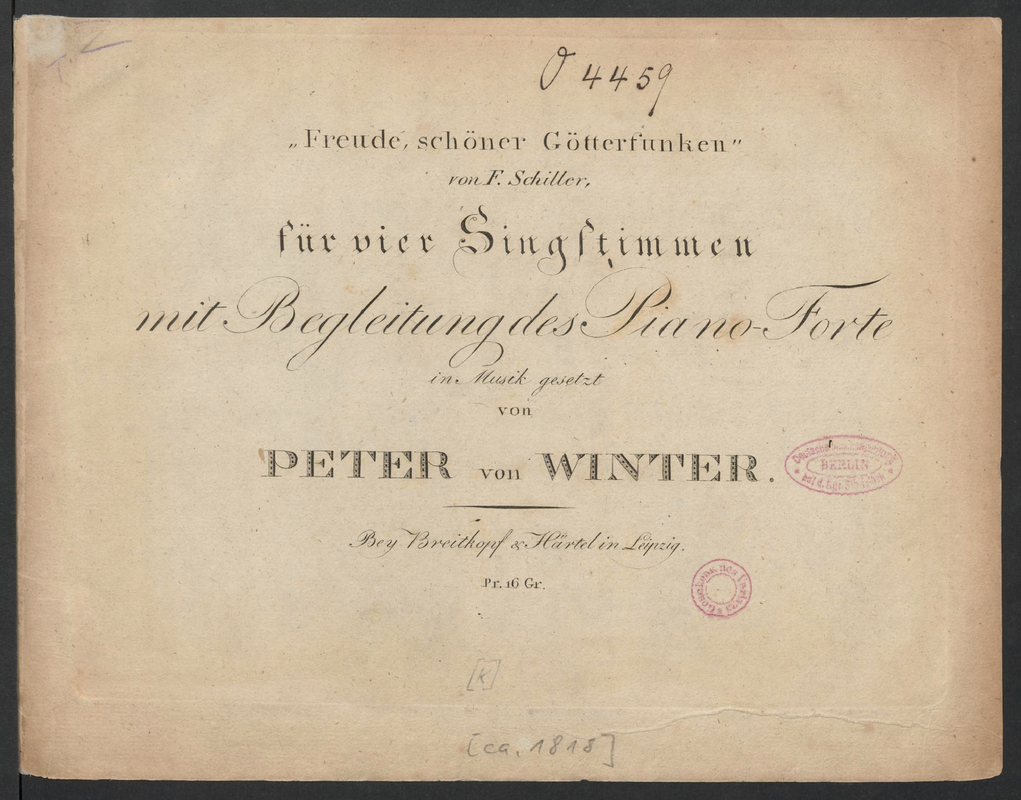 O 4459
„Freude, schöner Götterfunken”
von F. Schiller,
für vier Singstimmen
mit Begleitung des Piano-Forte
in Musik gesetzt
von
PETER von WINTER.
BERLIN
Bey Breitkopf & Härtel in Leipzig.
Pr. 16 Gr.
[K]
[ca. 1818]